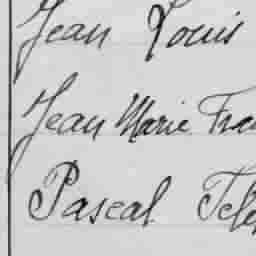 Jean Louis
Jean Marie Fra
Pascal Tele